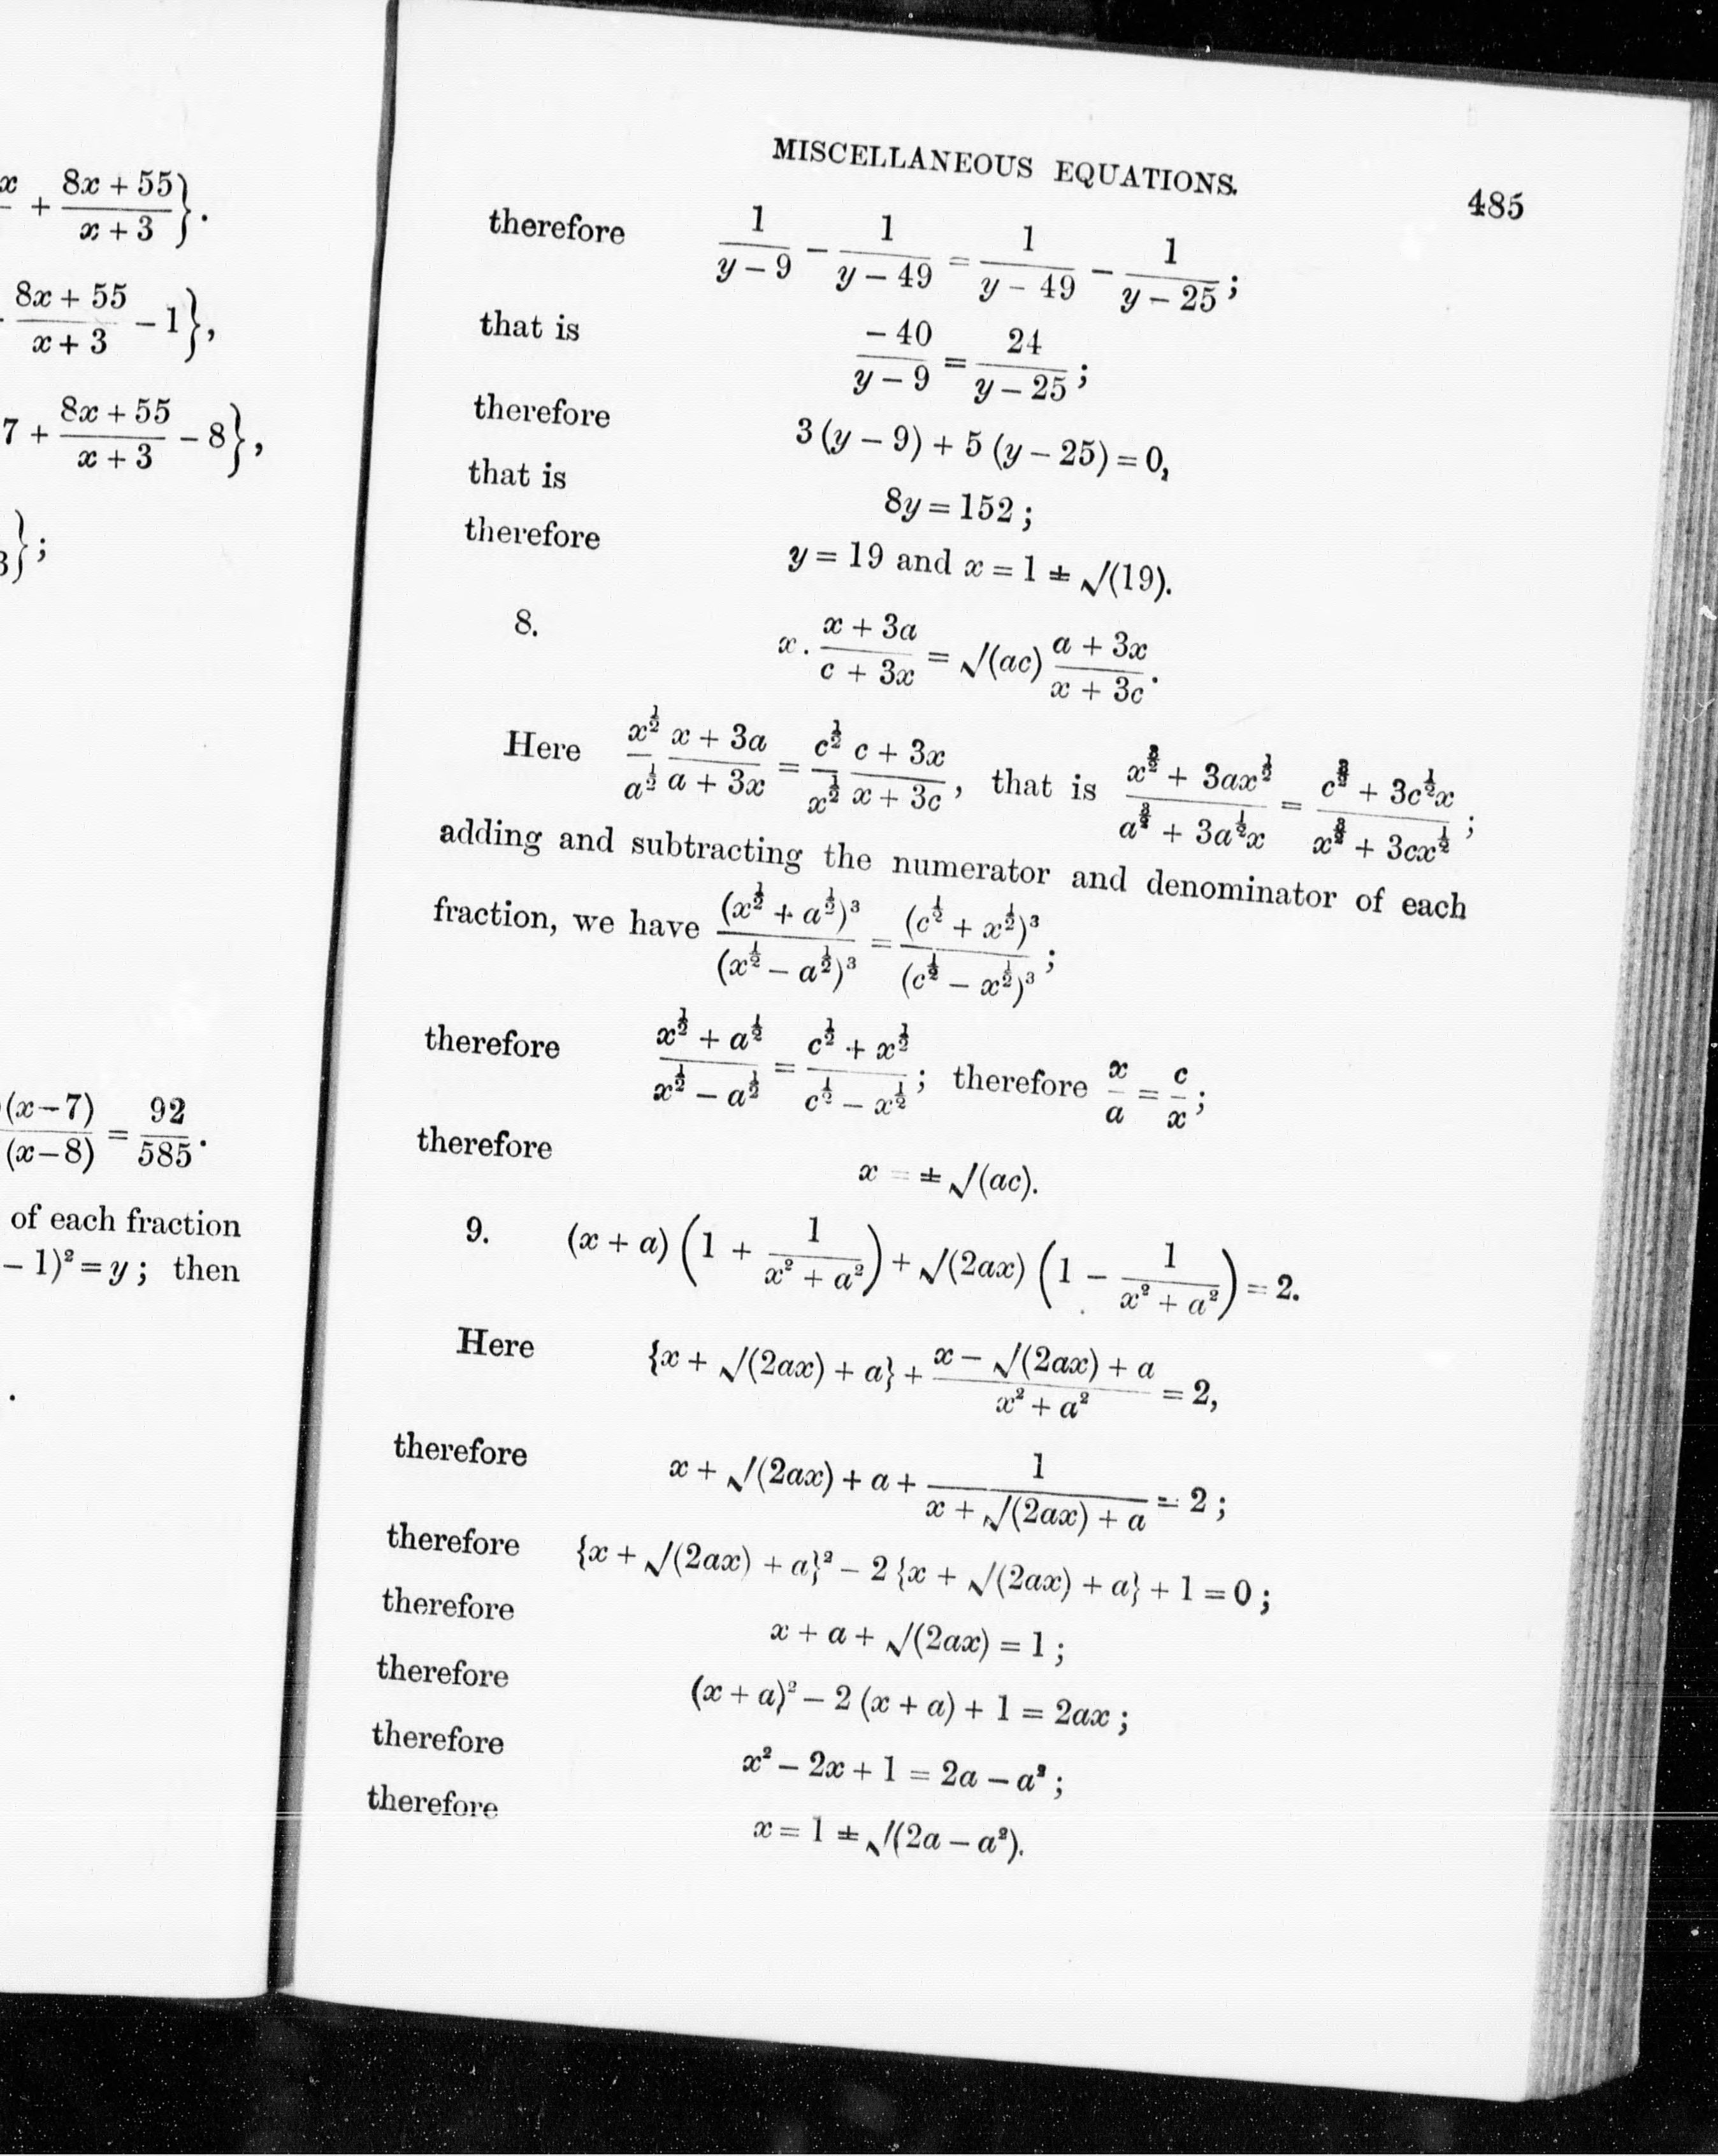 x + 8x + 55 / x + 3}.
8x + 55 / x + 3 − 1},
7 + 8x + 55 / x + 3 − 8},
3};
(x−7) / (x−8) = 92 / 585.
of each fraction
− 1)² = y ; then
MISCELLANEOUS EQUATIONS. 485
therefore 1/(y − 9) − 1/(y − 49) = 1/(y − 49) − 1/(y − 25) ;
that is − 40/(y − 9) = 24/(y − 25) ;
therefore 3 (y − 9) + 5 (y − 25) = 0,
that is 8y = 152 ;
therefore y = 19 and x = 1 ± √(19).
8. x . (x + 3a)/(c + 3x) = √(ac) (a + 3x)/(x + 3c).
Here x^½/a^½ (x + 3a)/(a + 3x) = c^½/x^½ (c + 3x)/(x + 3c), that is (x^(3/2) + 3ax^½)/(a^(3/2) + 3a^½x) = (c^(3/2) + 3c^½x)/(x^(3/2) + 3cx^½) ;
adding and subtracting the numerator and denominator of each
fraction, we have (x^½ + a^½)³/(x^½ − a^½)³ = (c^½ + x^½)³/(c^½ − x^½)³ ;
therefore (x^½ + a^½)/(x^½ − a^½) = (c^½ + x^½)/(c^½ − x^½) ; therefore x/a = c/x ;
therefore x = ± √(ac).
9. (x + a) (1 + 1/(x² + a²)) + √(2ax) (1 − 1/(x² + a²)) = 2.
Here {x + √(2ax) + a} + (x − √(2ax) + a)/(x² + a²) = 2,
therefore x + √(2ax) + a + 1/(x + √(2ax) + a) = 2 ;
therefore {x + √(2ax) + a}² − 2 {x + √(2ax) + a} + 1 = 0 ;
therefore x + a + √(2ax) = 1 ;
therefore (x + a)² − 2 (x + a) + 1 = 2ax ;
therefore x² − 2x + 1 = 2a − a² ;
therefore x = 1 ± √(2a − a²).